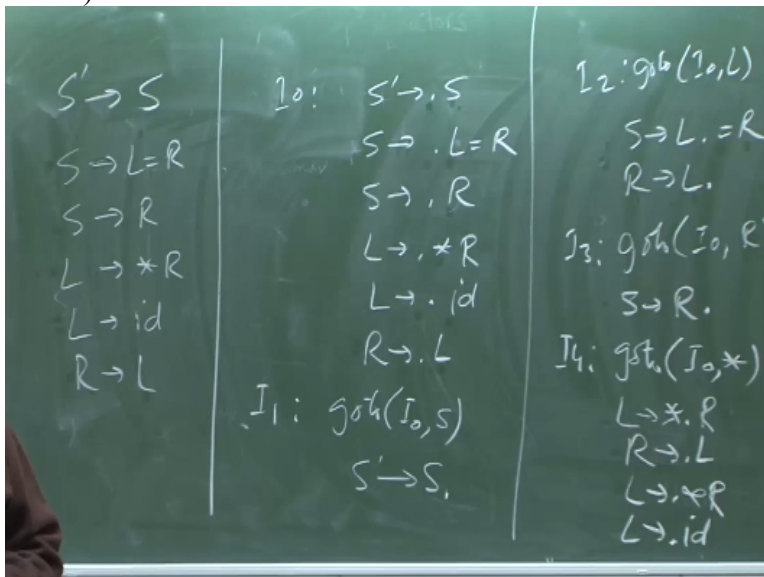 S' → S
S → L = R
S → R
L → * R
L → id
R → L
I0: S' → . S
S → . L = R
S → . R
L → . * R
L → . id
R → . L
I1: goto(I0, S)
S' → S.
I2: goto(I0, L)
S → L . = R
R → L .
I3: goto(I0, R
S → R .
I4: goto(I0, *)
L → * . R
R → . L
L → . * R
L → . id